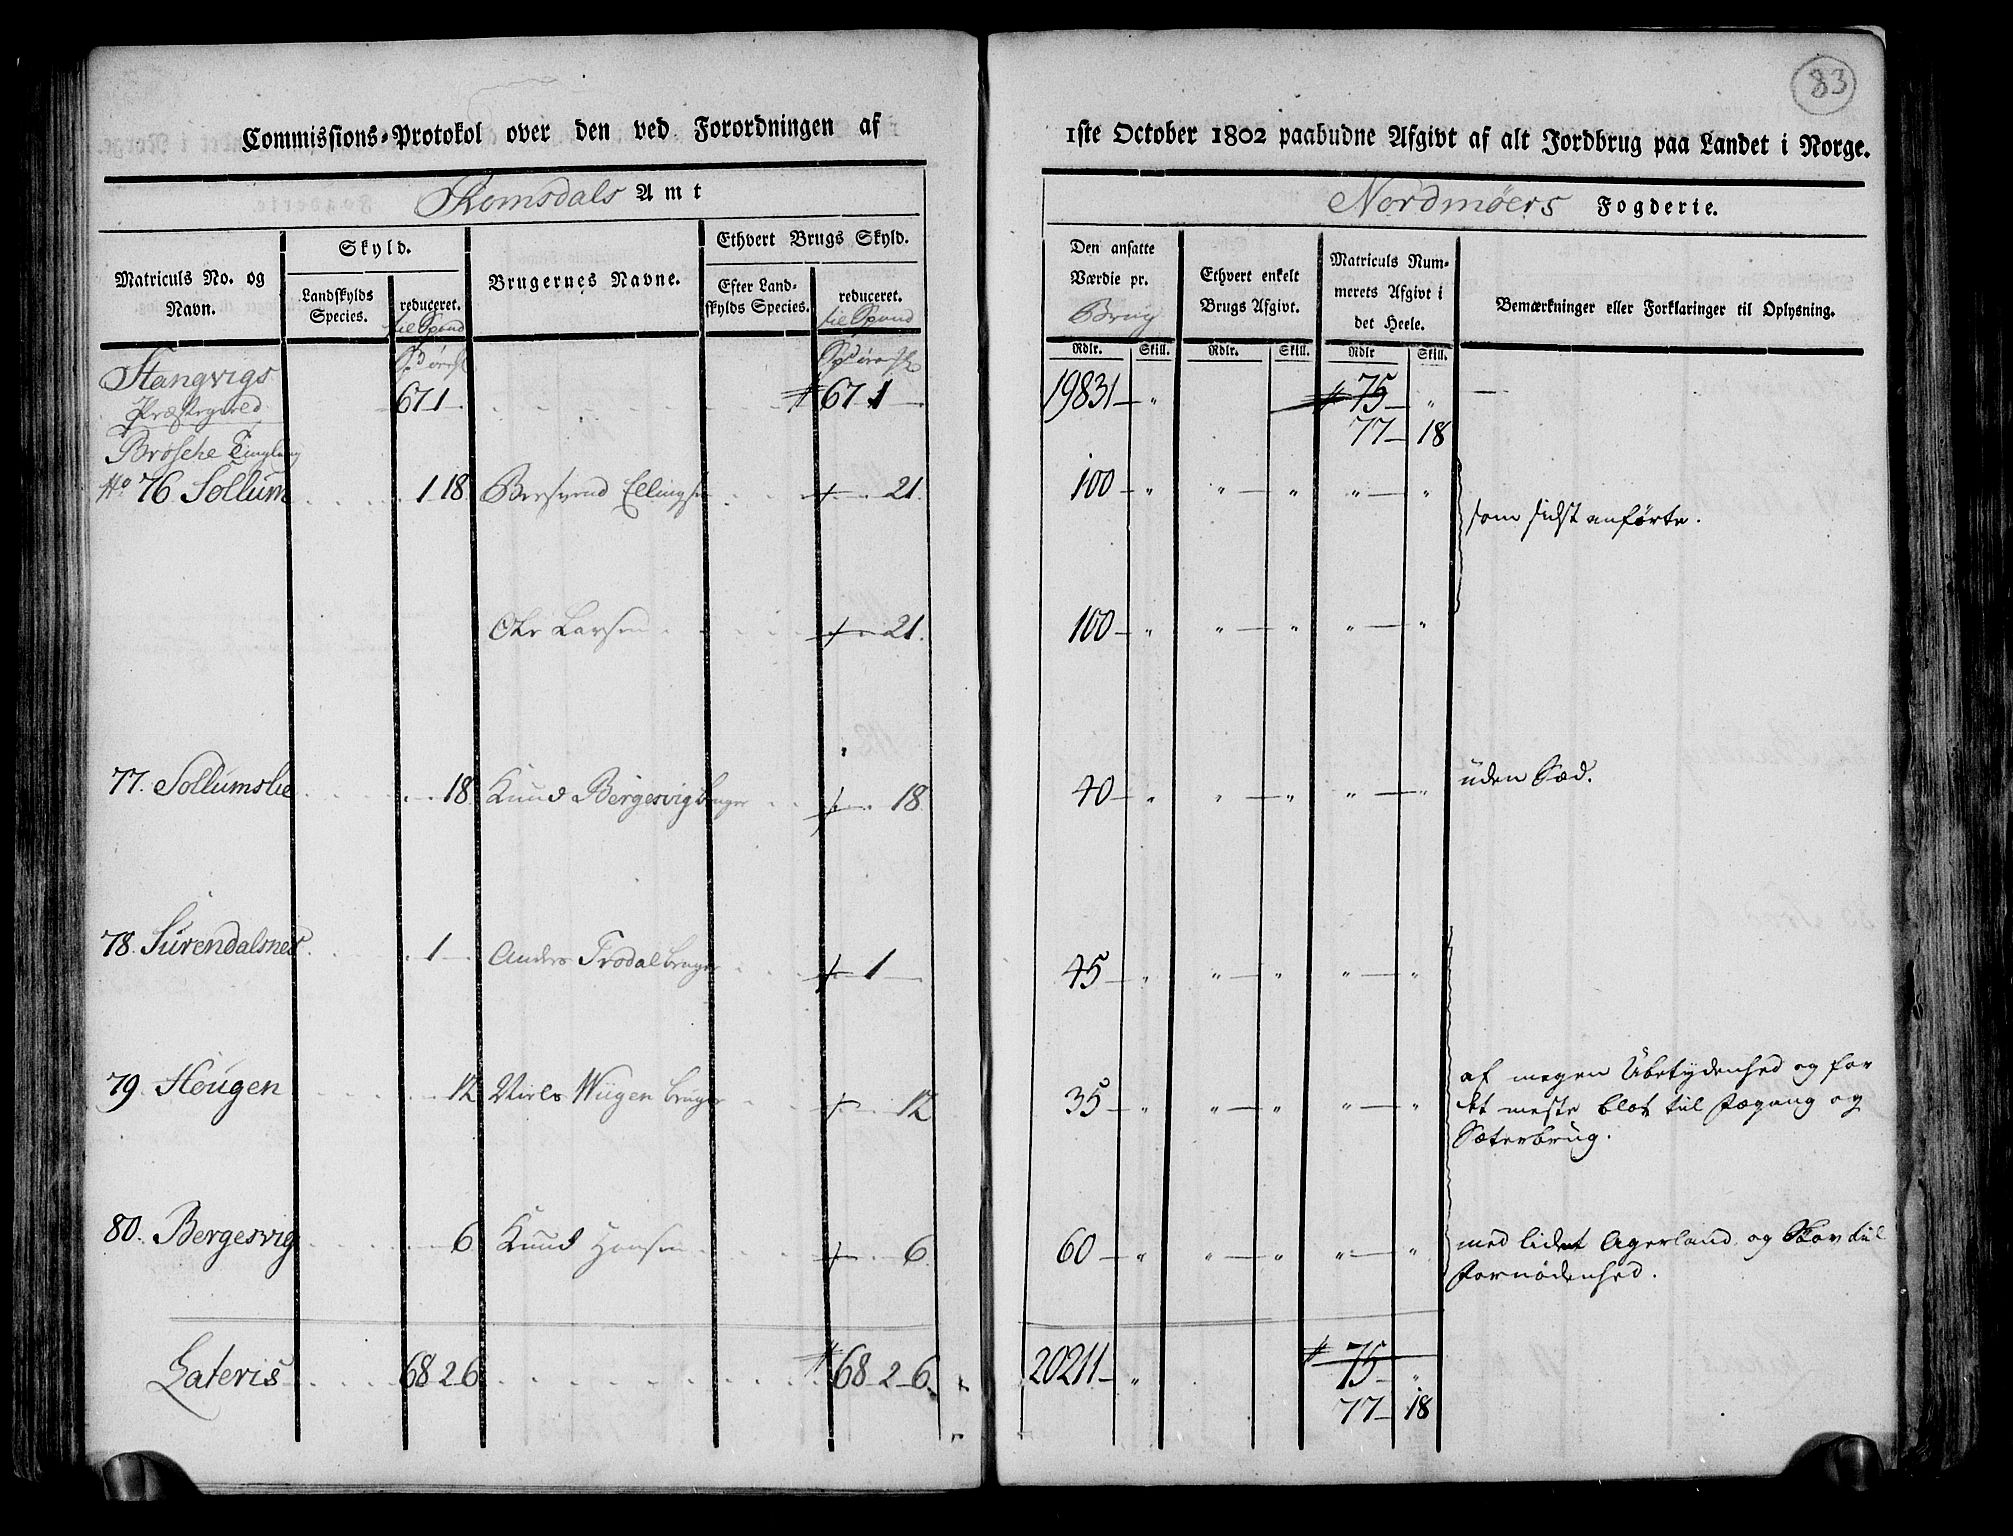 83
Commissions-Protokol over den ved Forordningen af
1ste October 1802 paabudne Afgivt af alt Jordbrug paa Landet i Norge.
Romsdals Amt
Nordmøers Fogderie.
Matriculs No. og Navn.
Skyld.
Landskylds Species.
reduceret.
til Spand
Brugernes Navne.
Ethvert Brugs Skyld.
Efter Land-skylds Species.
reduceret.
til Spand
Den ansatte Værdie pr.
Brug
Rdlr. Skill.
Ethvert enkelt Brugs Afgivt.
Rdlr. Skill.
Matriculs Nummerets Afgivt i det Heele.
Rdlr Skill.
Bemærkninger eller Forklaringer til Oplysning.
Stangvigs
Præstegield 67 1 — 67 1 — 19831 — " 75 — "
77 — 18
Brøsche Tinglaug
No 76 Sollum 1 18 Bersvend Ellingsen 21. 100 — " " — " " — " som sidst anførte.
Ole Larsen 21. 100 — " " — " " — "
77. Sollumslie 18 Knud Bergesvig bruger 18 40 — " " — " " — " uden Sæd.
78. Surendalsnes 1 — Anders Trodal bruger 1 — 45 — " " — " " — "
79. Hougen 12 Niels Wiigen bruger 12 35 — " " — " " — " af megen Ubetydenhed og for
det meste blot til Fægang og
Sæterbrug.
80. Bergesvig 6 Knud Hansen 6. 60 — " " — " " — " med lidet Agerland og Skov til
Fornødenhed.
Lateris 68 2 6 68 2 6 20211 — " 75 — "
77 — 18